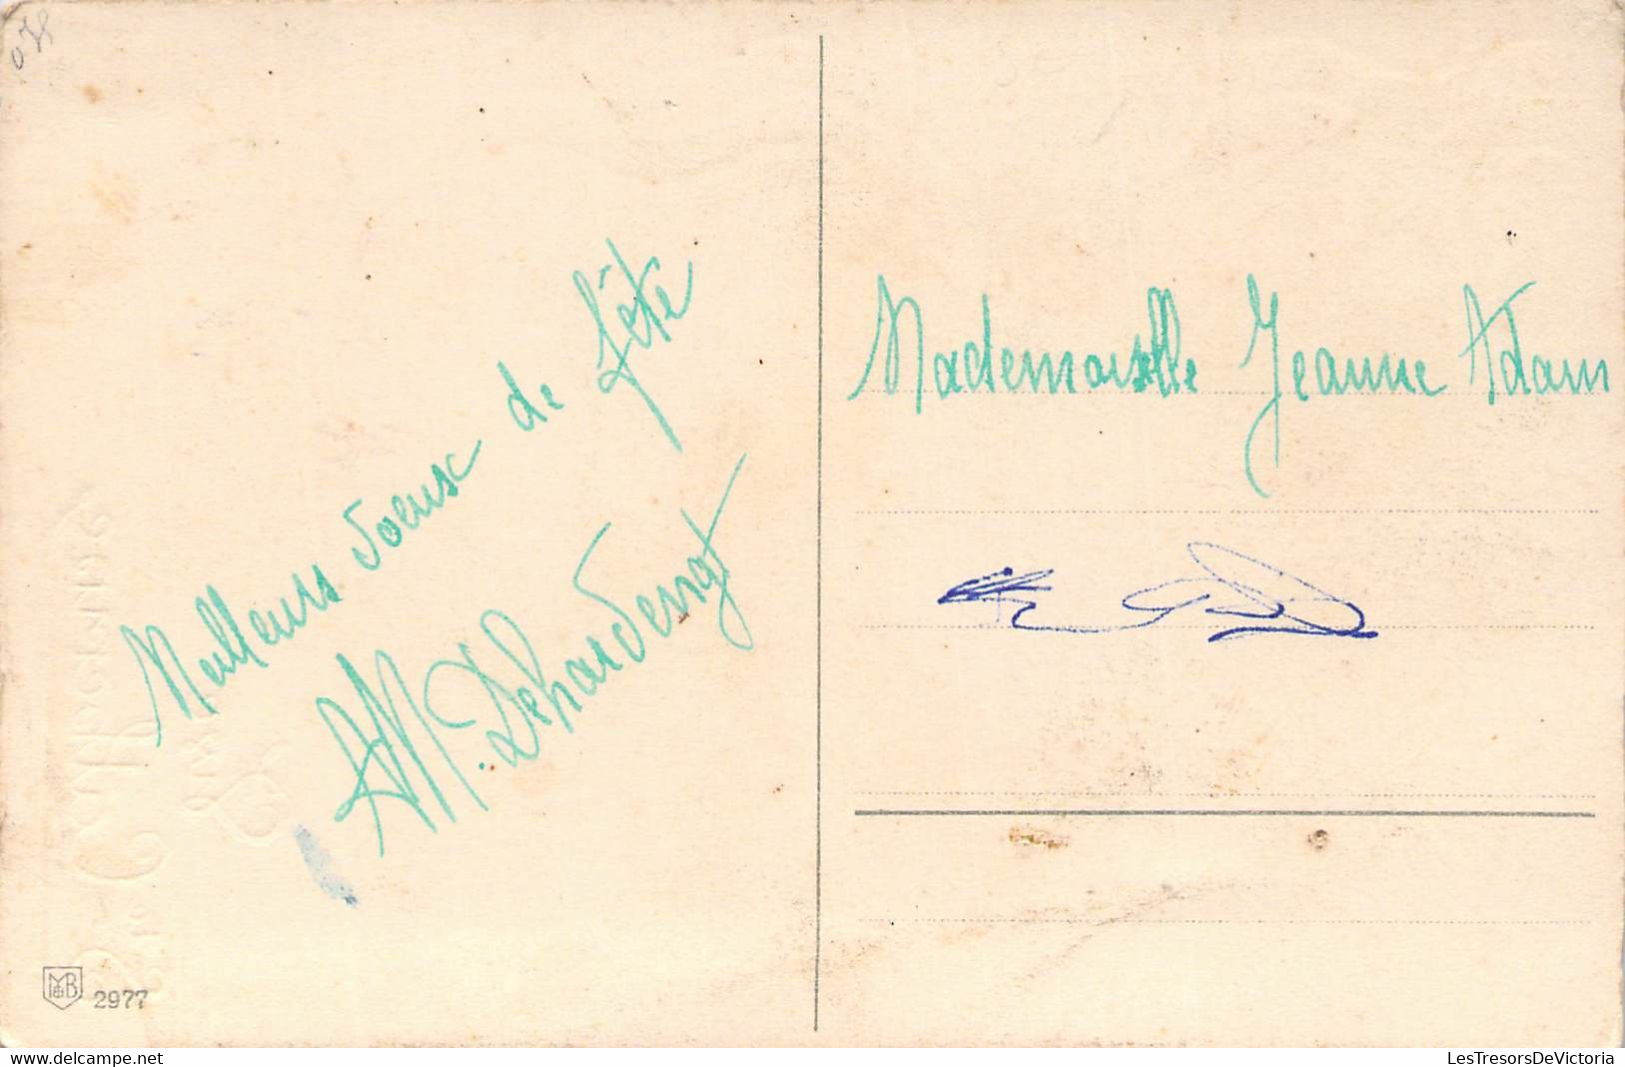 Meilleurs voeux de fête
Mademoiselle Jeanne Adam
MB
2977
delcampe.net
LesTresorsDeVictoria